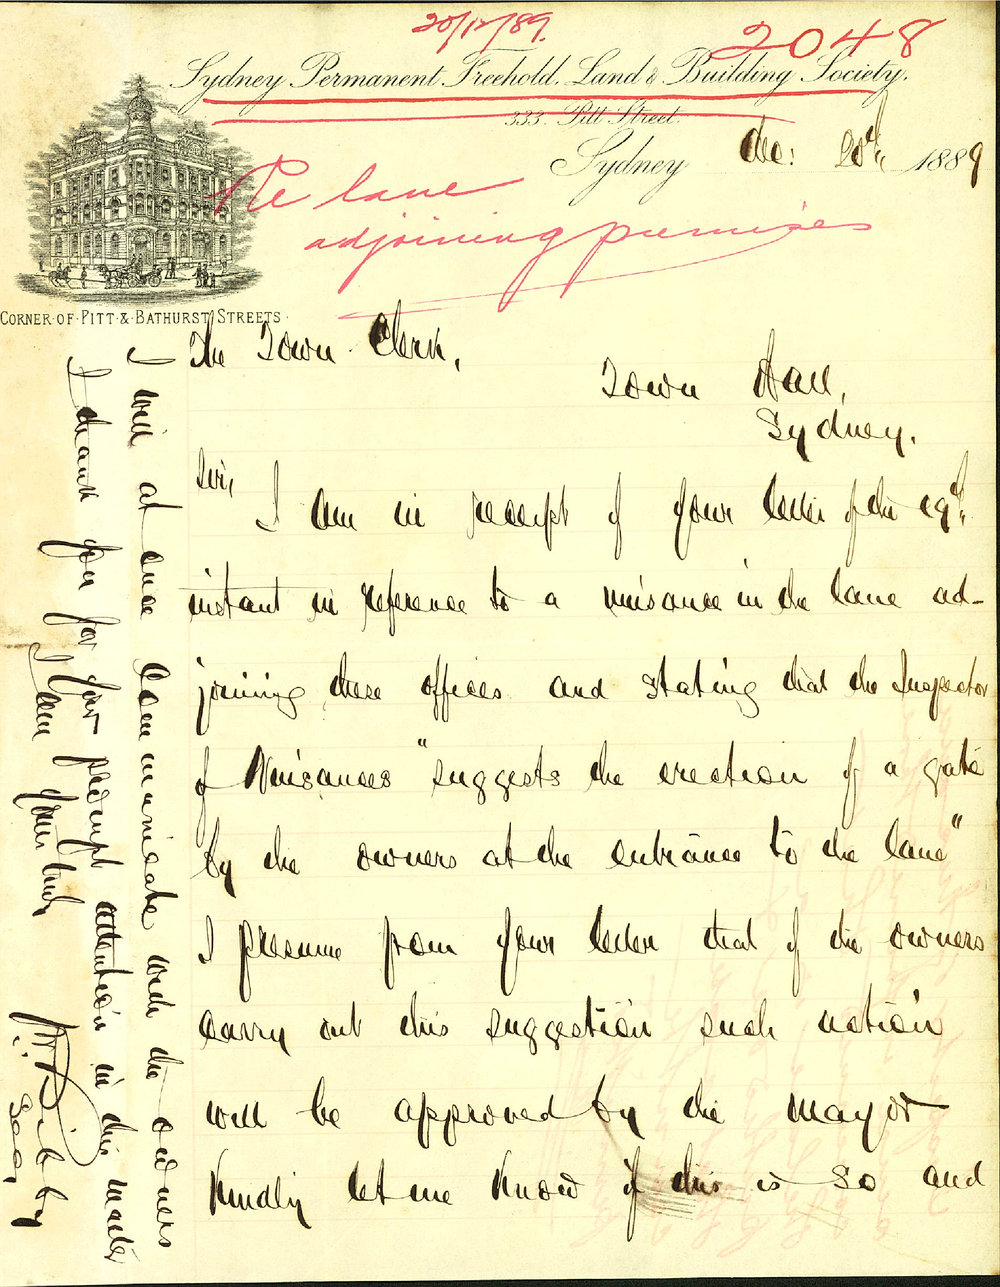 20/12/89.
2048
Sydney Permanent Freehold Land & Building Society.
333 Pitt Street.
Sydney Dec: 20th, 1889
Re lane
adjoining premises
CORNER·OF·PITT·&·BATHURST·STREETS·
The Town Clerk,
Town Hall,
Sydney.
Sir,
I am in receipt of your letter of the 19th,
instant in reference to a nuisance in the lane ad-
joining these offices and stating that the Inspector
of Nuisances "suggests the erection of a gate
by the owners at the entrance to the lane"
I presume from your letter that if the owners
carry out this suggestion such action
will be approved by the mayor
Kindly let me know if this is so and
I will at once communicate with the owners
I thank you for your prompt attention in this matter
I am yours truly
Secy